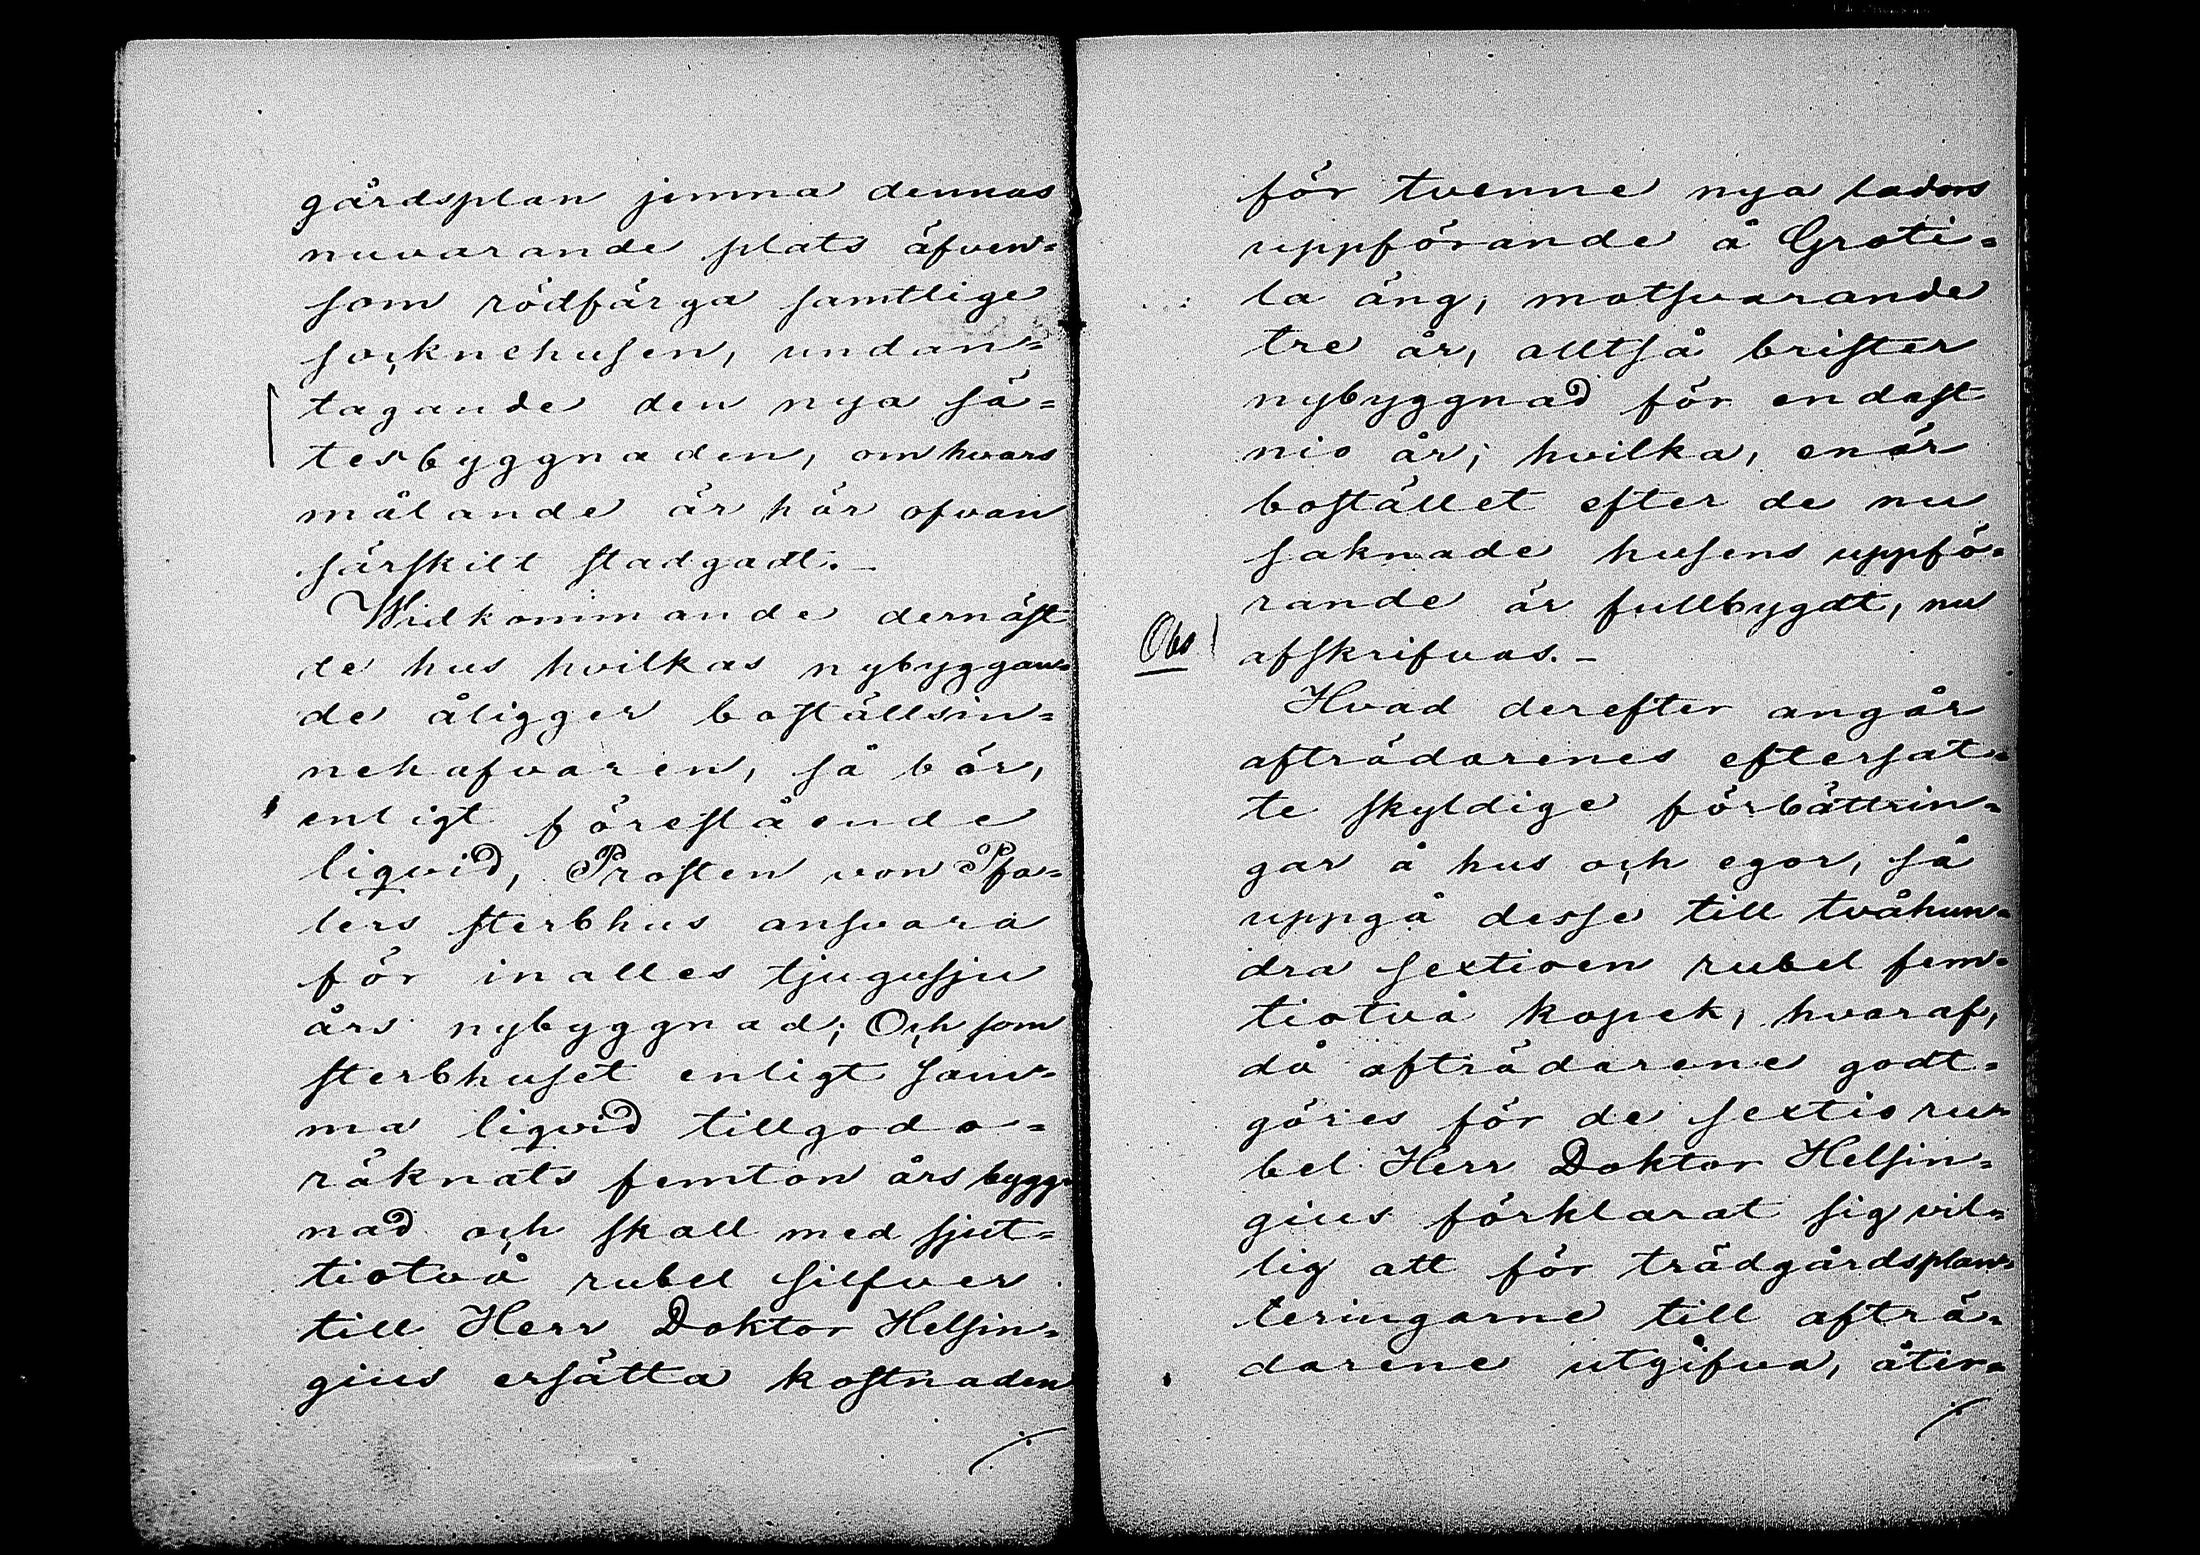 gårdsplan jemna dennas
nuvarande plats äfven=
som rödfärga samtlige
socknehusen, undan=
tagande den nya sä=
tesbyggnaden, om hvars
målande är här ofvan
särskilt stadgadt.—
Widkommande dernäst
de hus hvilkas nybyggan=
de åligger boställsin=
nehafvaren, så bör,
enligt förestående
liqvid, Prosten von Pfa=
lers sterbhus ansvara
för inalles tjugusju
års nybyggnad; Och som
sterbhuset enligt sam=
ma liqvid tillgodo=
räknats femton års bygg=
nad och skall med sjut=
tiotvå rubel silfver
till Herr Doktor Helsin=
gius ersätta kostnaden
./.
för tvenne nya ladors
uppförande å Groti=
la äng, motsvarande
tre år, alltså brister
nybyggnad för endast
nio år; hvilka, enär
bostället efter de nu
saknade husens uppfö=
rande är fullbygdt, nu
Obs! afskrifvas.—
Hvad derefter angår
afträdarenes eftersat=
te skyldige förbättrin=
gar å hus och egor, så
uppgå desse till tvåhun=
dra sextioen rubel fem=
tiotvå kopek, hvaraf,
då afträdarene godt=
göres för de sextio ru=
bel Herr Doktor Helsin=
gius förklarat sig vil=
lig att för trädgårdsplan=
teringarne till afträ=
darene utgifva, åter=
./.